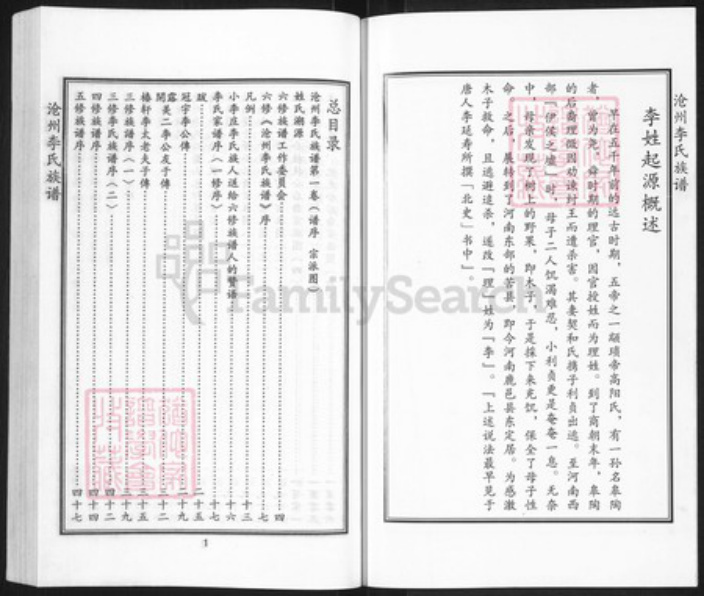 沧州李氏族谱
李姓起源概述
早在五千年前的远古时期，五帝之一颛顼帝高阳氏，有一孙名皋陶
者，曾为尧、舜时期的理官，因官授姓而为理姓。到了商朝末年，皋陶
的后裔理微因劝谏纣王而遭杀害。其妻契和氏携子利贞出逃。至河南西
部「伊侯之墟」时，母子二人饥渴难忍，小利贞更是奄奄一息。无奈
中，母亲发现了树上的野果，即木子，于是採下来充饥，保全了母子性
命，之后，展转到了河南东部的苦县，即今河南鹿邑县东定居。为感激
木子救命，且逃避追杀，遂改「理」姓为「李」。「上述说法最早见于
唐人李延寿所撰「北史」书中」。
总目录
沧州李氏族谱第一卷（谱序 宗派图）
姓氏溯源
六修族谱工作委员会 四
六修《沧州李氏族谱》序 七
凡例 十三
小李庄李氏族人送给六修族谱人的赞语 十六
李氏家谱序（一修序） 十七
跋 二十五
冠宇李公傳 二十九
開美二李公友于傳 三十二
椿軒李太老夫子傳 三十五
三修族譜序（一） 三十九
三修李氏族譜序（二） 四十二
四修族譜序 四十四
五修族譜序 四十七
沧州李氏族谱
1
FamilySearch